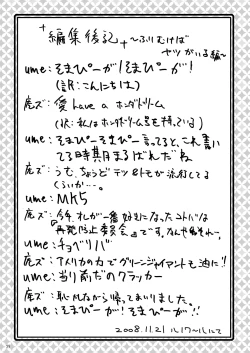 編集後記
〜ふりむけば
ヤツがいる編〜
ume:そまぴーが!そまぴーが!
(訳:こんにちは)
虎ズ:愛 have a ホンダドリーム
(訳:私はホンダドリーム号を持っている)
ume:そまぴーそまぴー言ってると、これ書い
てる時期まるばれだね
虎ズ:うむ、ちょうどテツ&トモが流行してる
くらいか…。
ume:MK5
虎ズ:今年、オレが一番好きになったコトバは
『再発防止委員会』です。なんや
ume:チョベリバ
虎ズ:アメリカの力でグリーンジャイアントも油に!
ume:当り前だのクラッカー
虎ズ:恥ずかしながら帰ってまいりました。
ume:そまぴーが!そまぴーが!!
2008.11.21